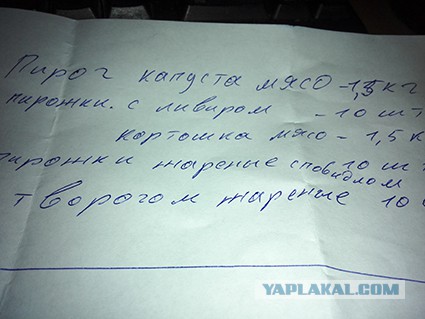 Пирог капуста мясо - 1,5 кг
пирожки. с ливиром - 10 шт
картошка мясо - 1,5 к
пирожки жареные с повидлом 10 шт
творогом жареные 10
YAPLAKAL.COM